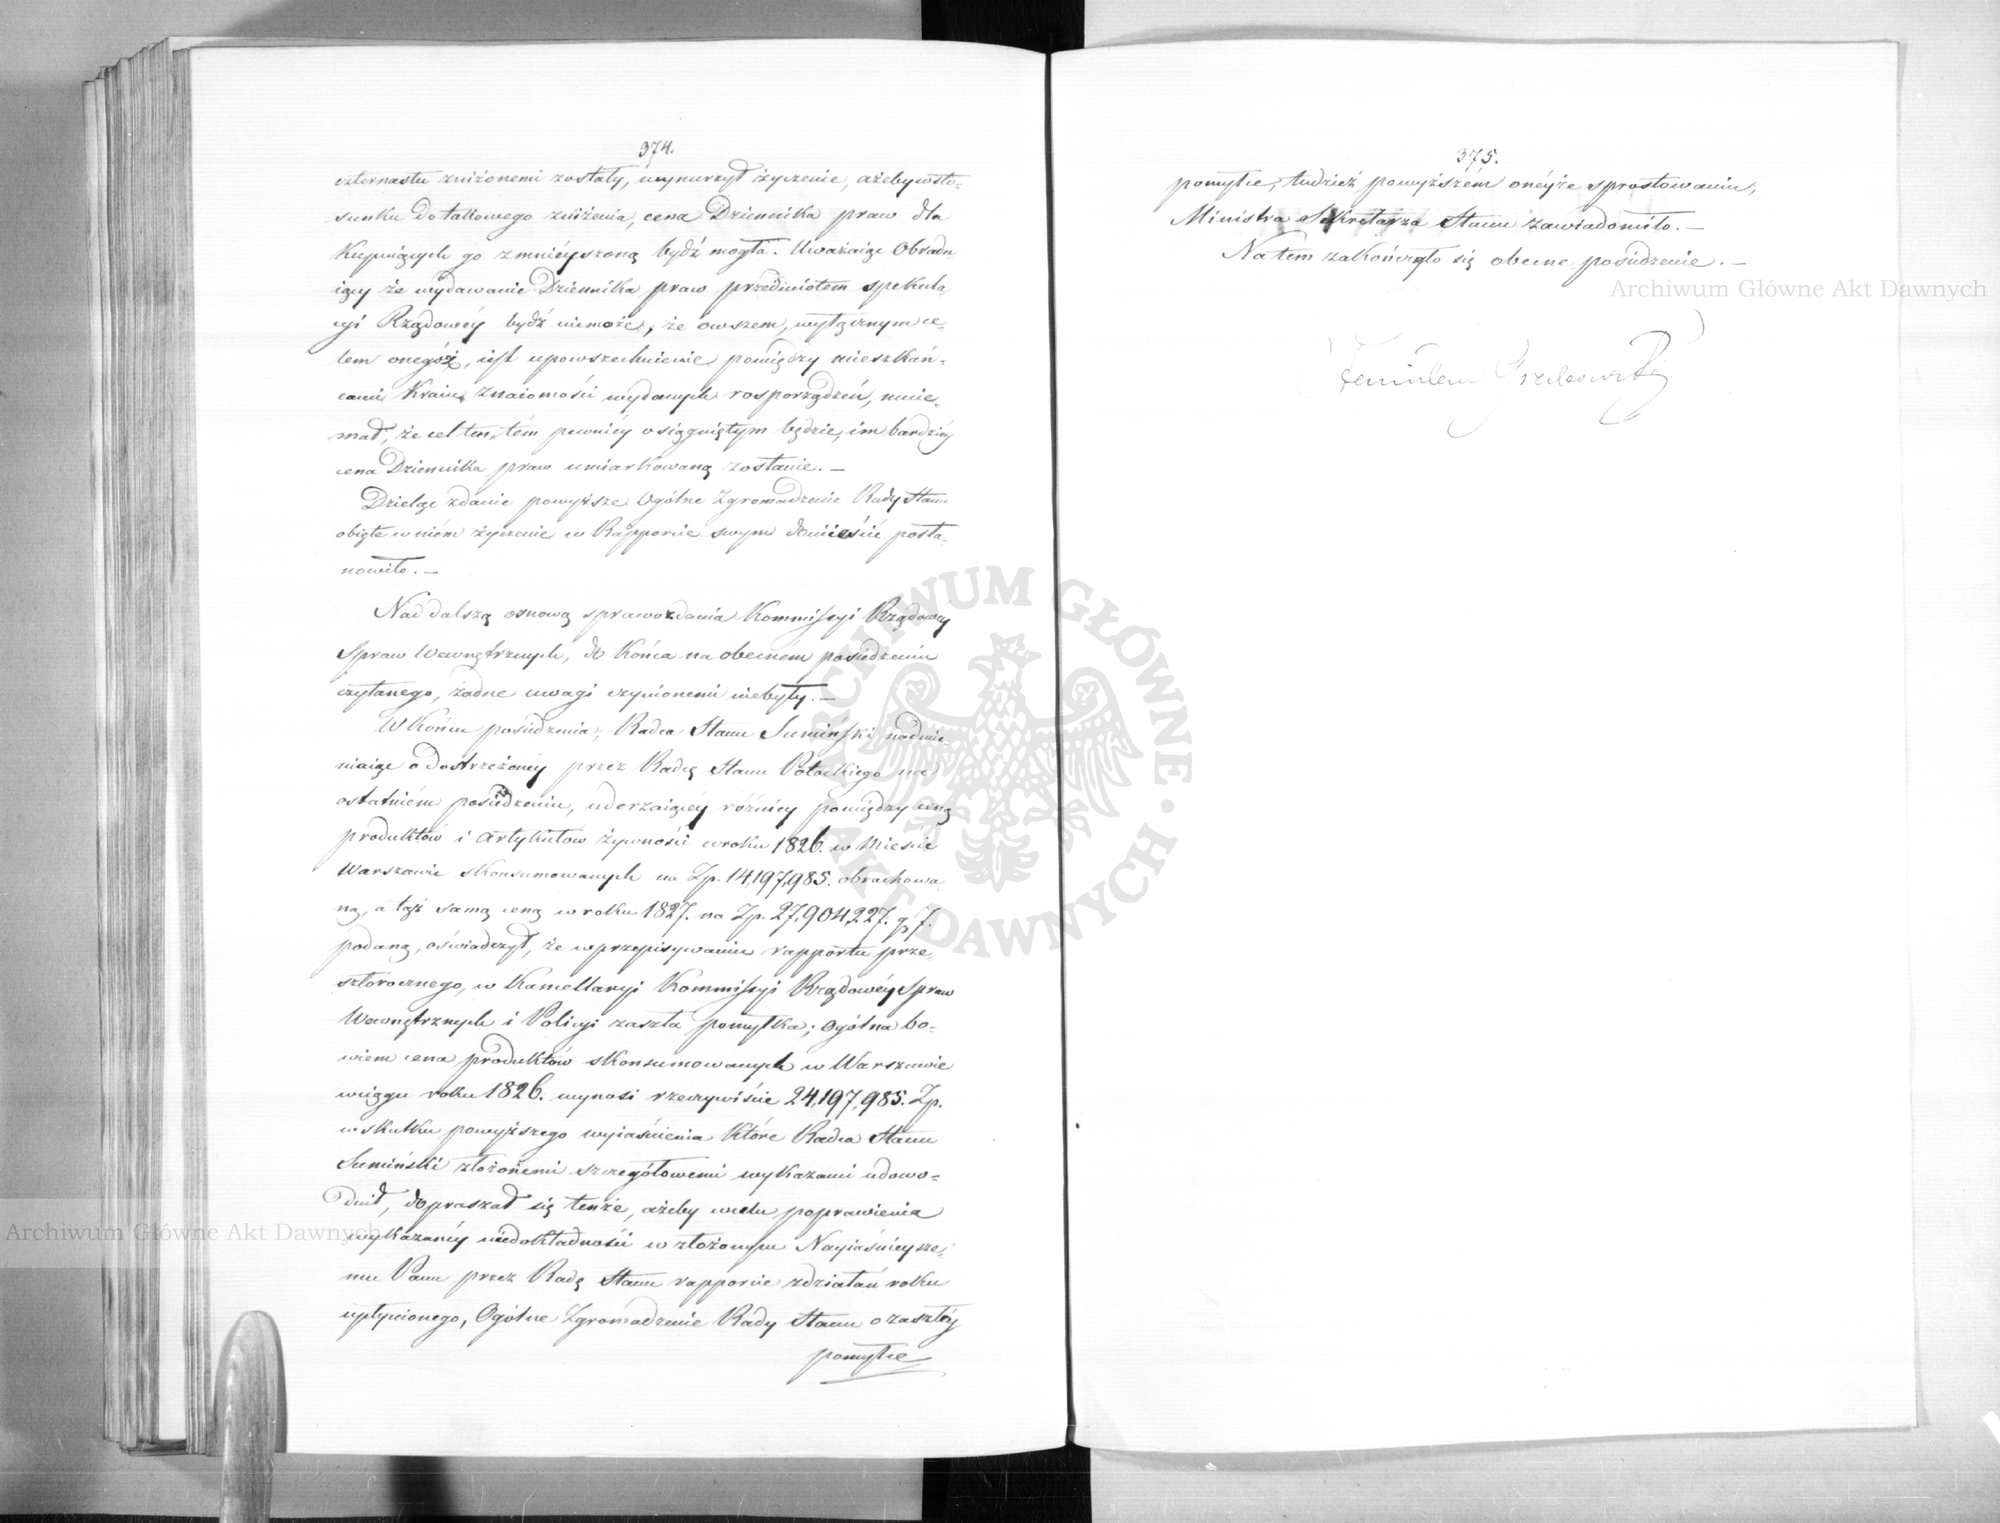 374.
czternastu zniżonemi zostały, wynurzył życzenie, ażeby w sto-
sunku do takowego zniżenia, cena Dziennika praw dla
Kupuiących go zmnieyszoną bydź mogła. Uważaiąc Obradu
iący że wydawanie Dziennika praw przedmiotem spekula
cyi Rządowéy bydź niemoże, że owszem, wyłącznym ce-
lem onegóż, iest upowszechnienie pomiędzy mieszkań-
cami Kraiu znaiomości wydanych rosporządzeń, mnie-
mał, że cel ten, tém pewniéy osiągniętym będzie, im bardziéy
cena Dziennika praw umiarkowaną zostanie. —
Dzieląc zdanie powyższe Ogólne Zgromadzenie Rady Stanu
obięte w niém życzenie w Rapporcie swym domieścić posta-
nowiło. —
Nad dalszą osnową sprawozdania Kommissyi Rządowéy
Spraw Wewnętrznych, do końca na obecném posiedzeniu
czytanego, żadne uwagi czynionemi niebyły. —
W końcu posiedzenia, Radca Stanu Sumiński nadmie-
niaiąc o dostrzeżoney przez Radcę Stanu Potockiego na
ostatniém posiedzeniu, uderzaiącéy różnicy pomiędzy ceną
produktów i artykułów żywności w roku 1826. w Mieście
Warszawie skonsumowanych na Zp. 14,197,985. obrachowa
ną, a tąż samą ceną w roku 1827. na Zp. 27,904,227. g. 7.
podaną, oświadczył, że w przepisywaniu rapportu prze-
szłorocznego, w Kancellaryi Kommissyi Rządowéy Spraw
Wewnętrznych i Policyi zaszła pomyłka; ogólna bo-
wiem cena produktów skonsumowanych w Warszawie
w ciągu roku 1826. wynosi rzeczywiście 24,197,985. Zp.
w skutku powyższego wyiaśnienia które Radca Stanu
Sumiński złożonemi szczegółowemi wykazami udowo-
dnił, dopraszał się tenże, ażeby w celu poprawienia
wykazanéy niedokładności w złożonym Nayiaśnieysze-
mu Panu przez Radę Stanu rapporcie z działań roku
upłynionego, Ogólne Zgromadzenie Rady Stanu o zaszłéy
pomyłce
375.
pomyłce, tudzież powyższém onéyże sprostowaniu,
Ministra Sekretarza Stanu zawiadomiło. —
Na tem zakończyło się obecne posiedzenie. —
Archiwum Główne Akt Dawnych
Archiwum Główne Akt Dawnych
ARCHIWUM GŁÓWNE · AKT DAWNYCH ·